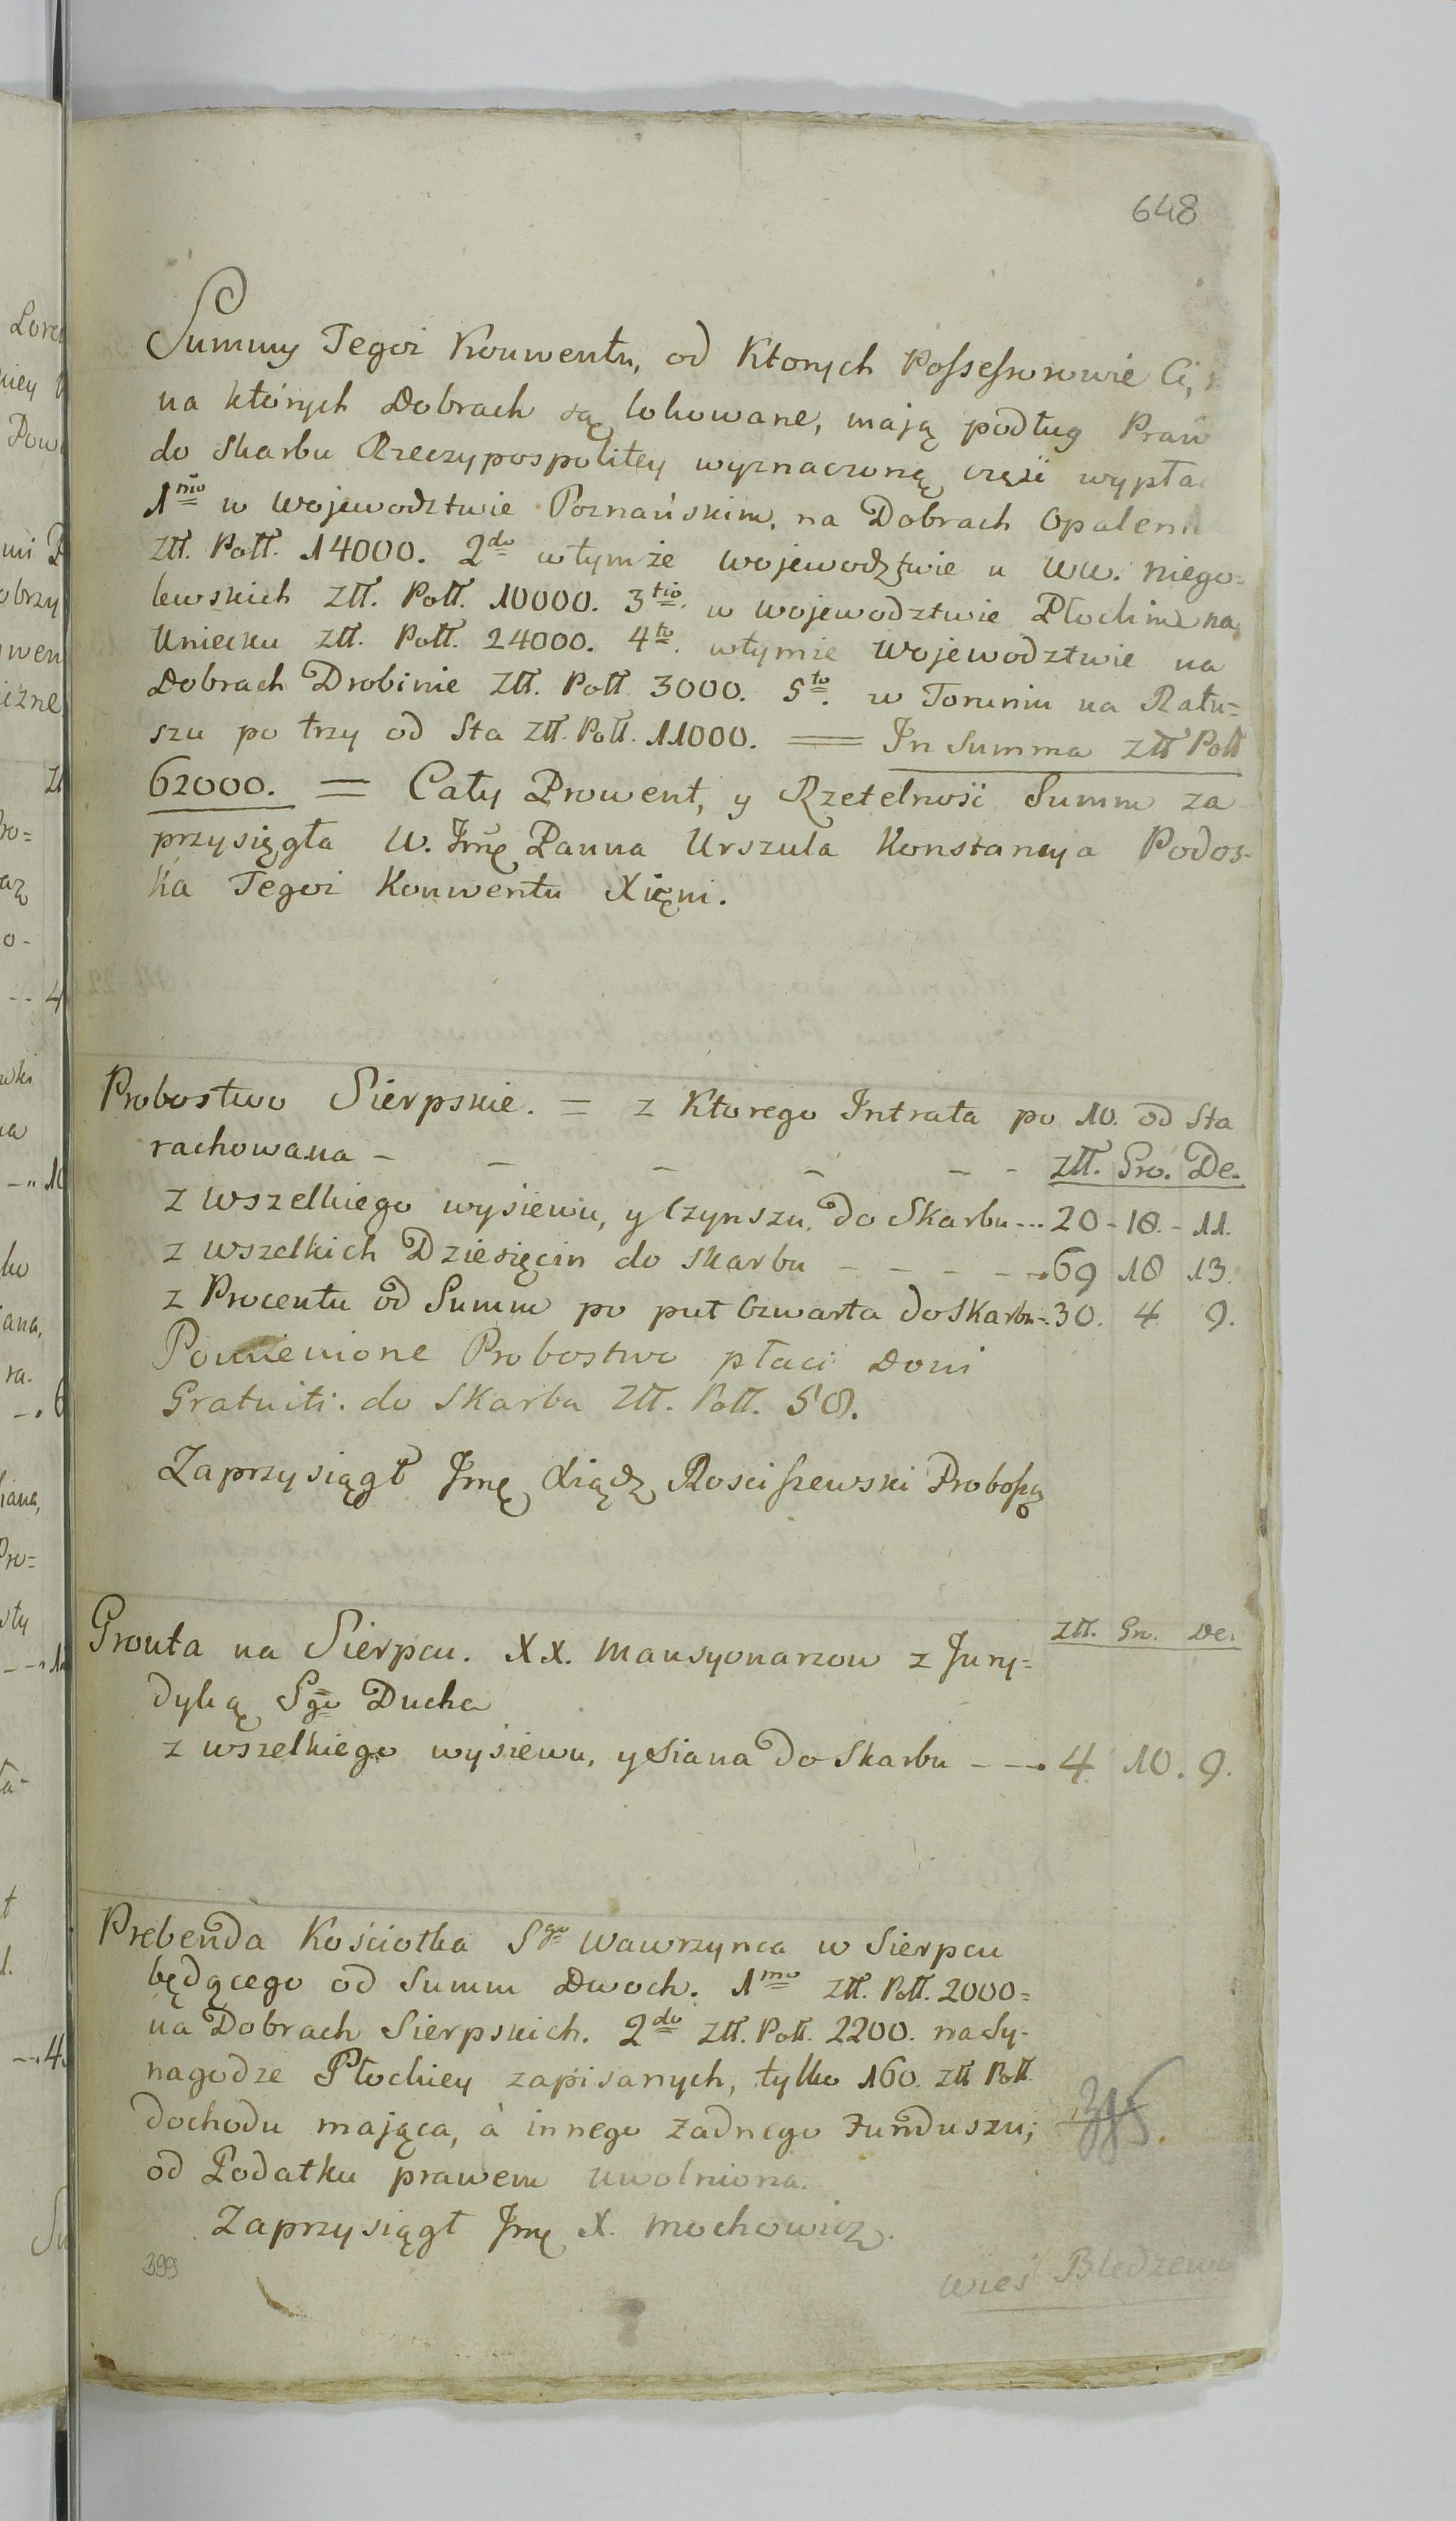 648
Summy Tegoż Konwentu, od Ktorych Possessorowie Ci,
na których Dobrach są lokowane, mają podług Praw
do Skarbu Rzeczypospolitey wyznaczoną część wypła
1mo w Wojewodztwie Poznańskim, na Dobrach Opaleni
Złł. Poll. 14000. 2do w tymże wojewodztwie u WW. Niego=
lewskich Złł. Poll. 10000. 3tio. w wojewodztwie Płockim na
Uniecku Złł. Poll. 24000. 4to. w tymże Wojewodztwie na
Dobrach Drobinie Złł. Poll 3000. 5to. w Toruniu na Ratu=
szu po trzy od Sta Złł. Poll. 11000. = In Summa Złł Poll
62000. = Cały Prowent, y Rzetelność Summ za-
przysięgła W. Jmę Panna Urszula Konstancya Podos-
ka Tegoż Konwentu Xięni.
Probostwo Sierpskie. = z Ktorego Intrata po 10. od Sta
rachowana - - - - - - złł. Gro. De.
z wszelkiego wysiewu, y Czynszu, do Skarbu --- 20 - 18. - 11.
z wszelkich Dziesięcin do skarbu - - - - - 69 18 13.
z Procentu od Summ po puł czwarta do Skarbu -. 30. 4 9.
Pomienione Probostwo płaci Doni
Gratuiti. do Skarbu Złł. Poll. 58.
Zaprzysiągł Jmę Xiądz Rosciszewski Proboszcz
Złł. Gr. De.
Grouta na Sierpcu. XX. Mansyonarzow z Jury=
dyką Sgo Ducha
z wszelkiego wysiewu, y Siana do Skarbu - - - 4. 10. 9.
Prebenda Kościołka Sgo Wawrzynca w Sierpcu
będącego od Summ Dwoch. 1mo złł. Poll. 2000=
na Dobrach Sierpskich. 2do Złł. Poll. 2200. na Sy-
nagodze Płockiey zapisanych, tylko 160. złł Poll.
dochodu mająca, à innego Żadnego Funduszu;
od Podatku prawem uwolniona.
Zaprzysiągł Jmę X. Mochowicz.
399
Wieś Bledzewo